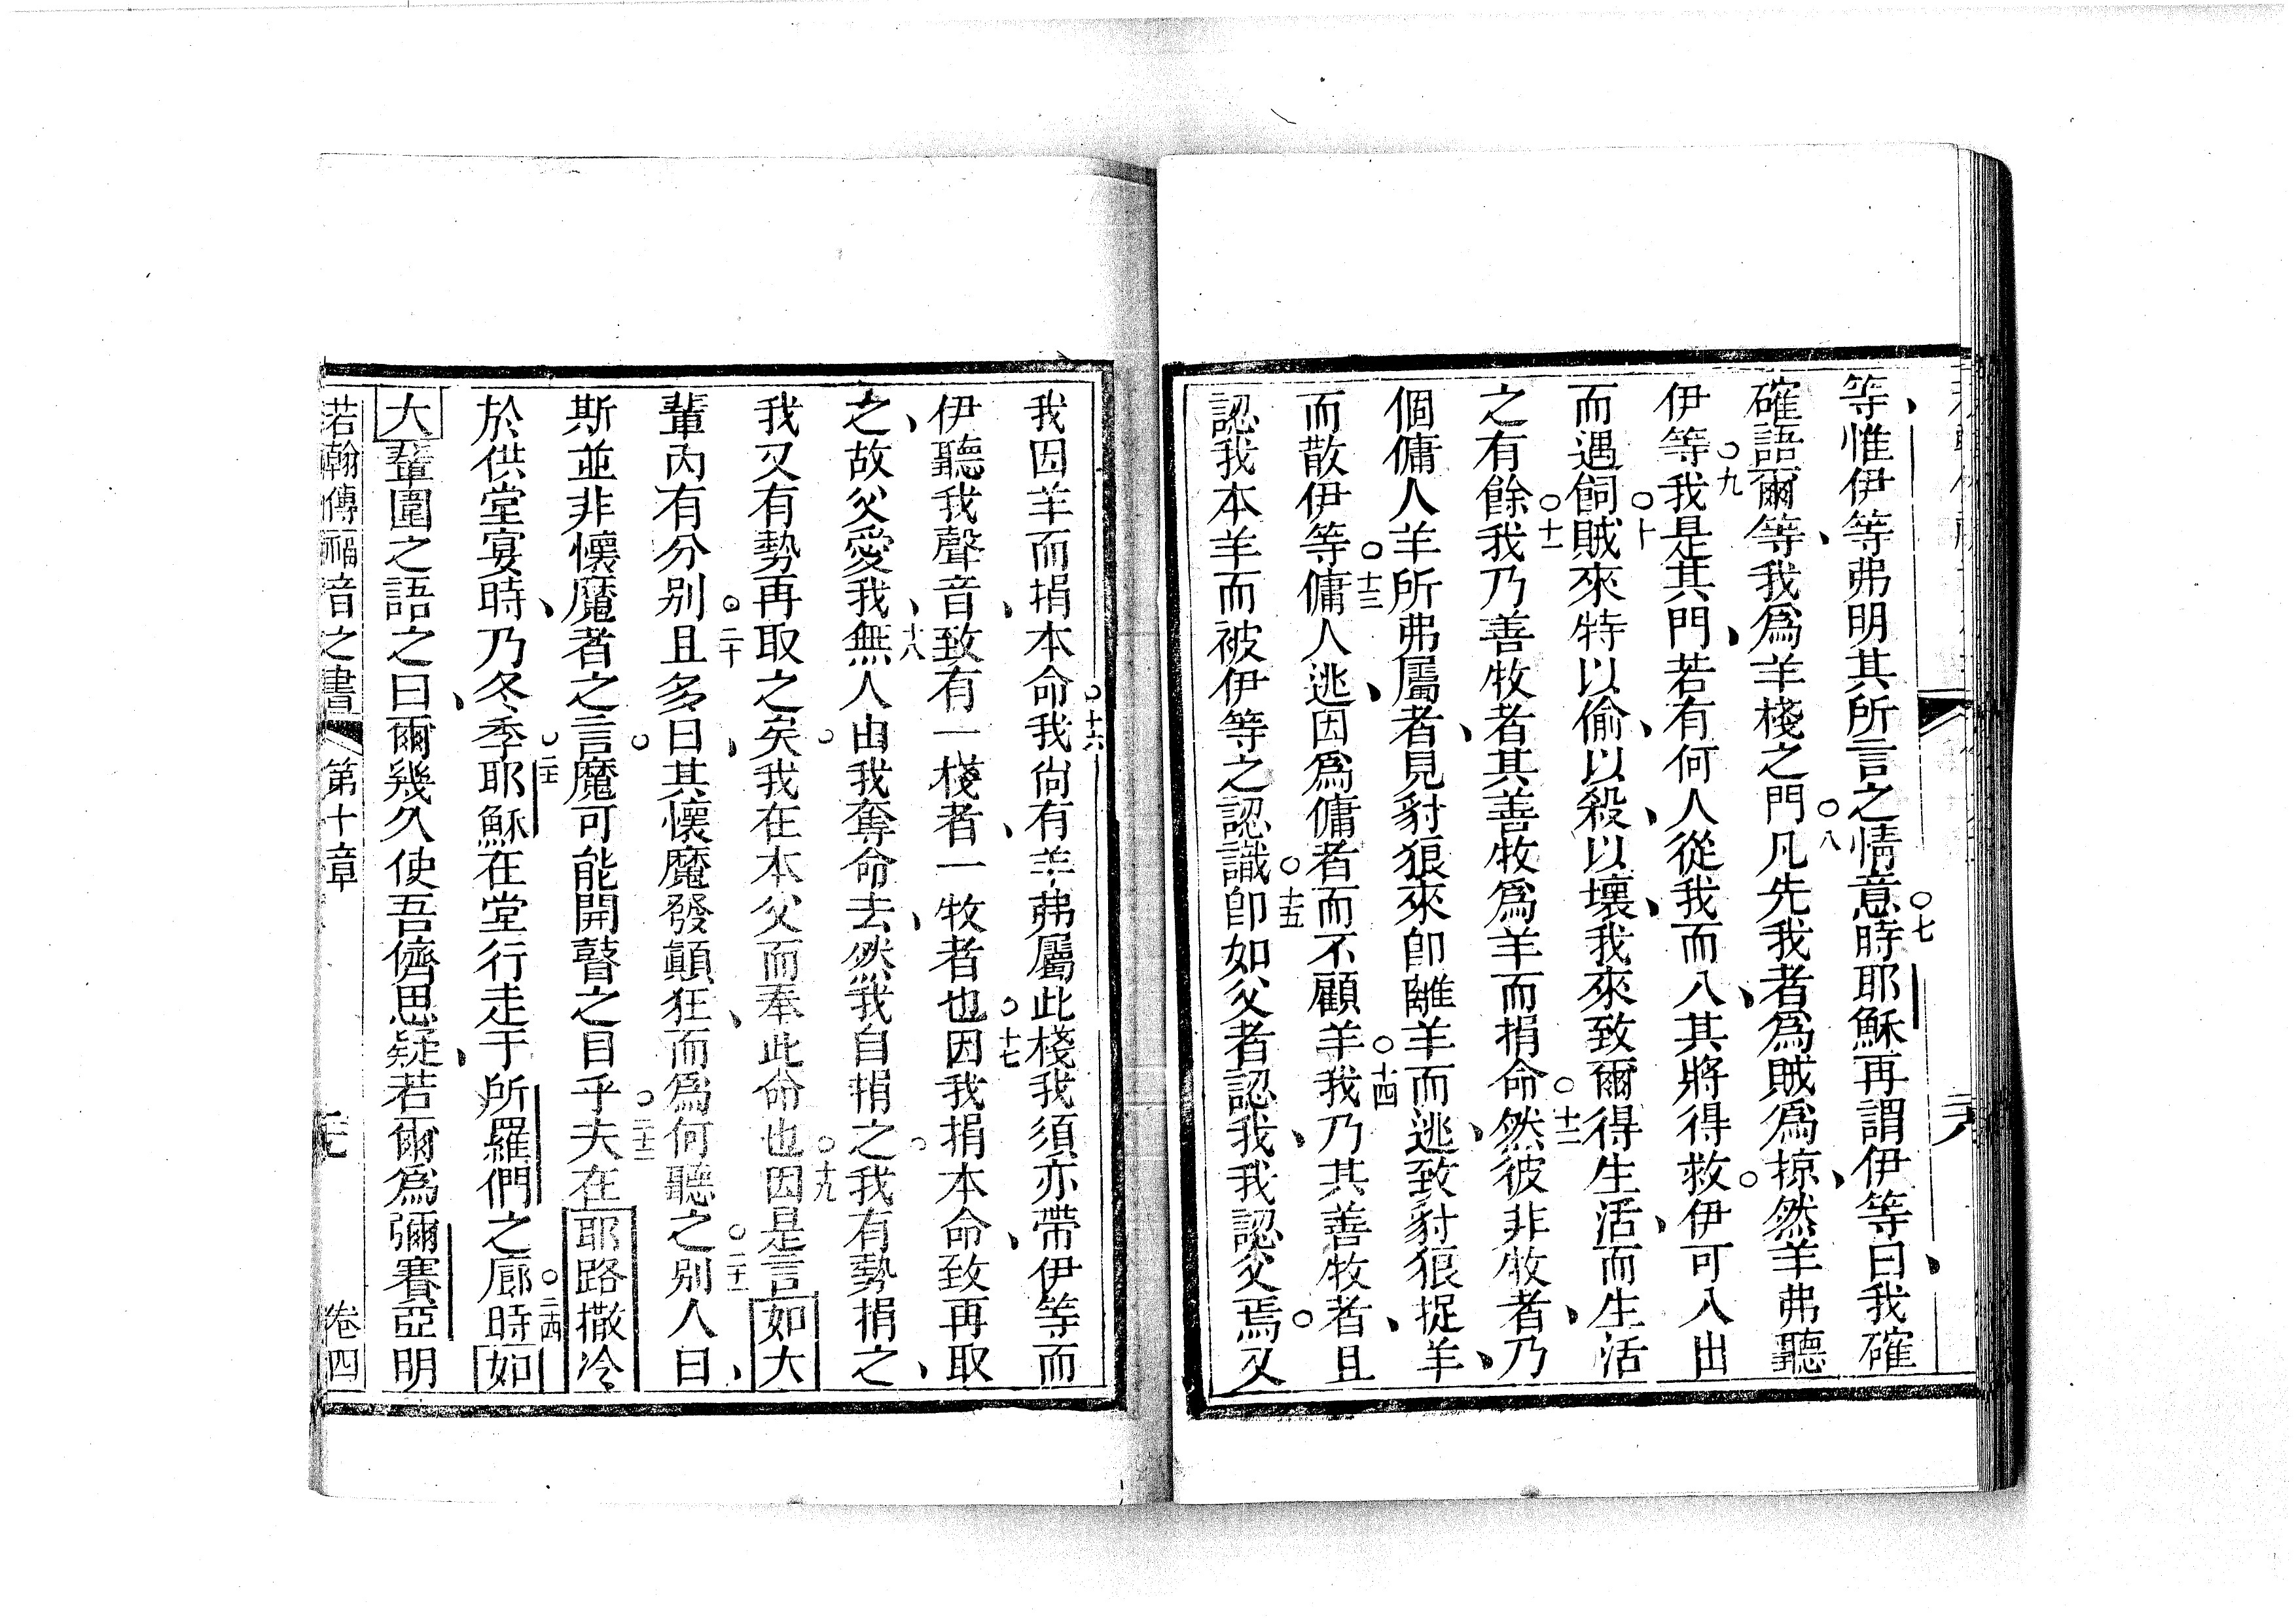 等惟伊等弗明其所言之情意時○七耶穌再謂伊等曰我確
確語爾等我為羊棧之門○八凡先我者為賊為掠然羊弗聽
伊等○九我是其門若有何人從我而入其將得救伊可入出
而遇飼○十賊來特以偷以殺以壞我來致爾得生活而生活
之有餘○十一我乃善牧者其善牧為羊而捐命○十二然彼非牧者乃
個傭人羊所弗屬者見豺狼來即離羊而逃致豺狼捉羊
而散伊等○十三傭人逃因為傭者而不顧羊○十四我乃其善牧者且
認我本羊而被伊等之認識○十五即如父者認我我認父焉又
我因羊而捐本命○十六我尚有羊弗屬此棧我須亦帶伊等而
伊聽我聲音致有一棧者一牧者也○十七因我捐本命致再取
之故父愛我○十八無人由我奪命去然我自捐之我有勢捐之
我又有勢再取之矣我在本父而奉此命也○十九因是言如大
輩內有分別○二十且多曰其懷魔發顛狂而為何聽之○二十一別人曰
斯並非懷魔者之言魔可能開瞽之目乎○二十二夫在耶路撒冷
於供堂宴時乃冬季○二十三耶穌在堂行走于所羅們之廊時○二十四如
大輩圍之語之曰爾幾久使吾儕思疑若爾為彌賽亞明
若翰傳福音之書 第十章 卷四